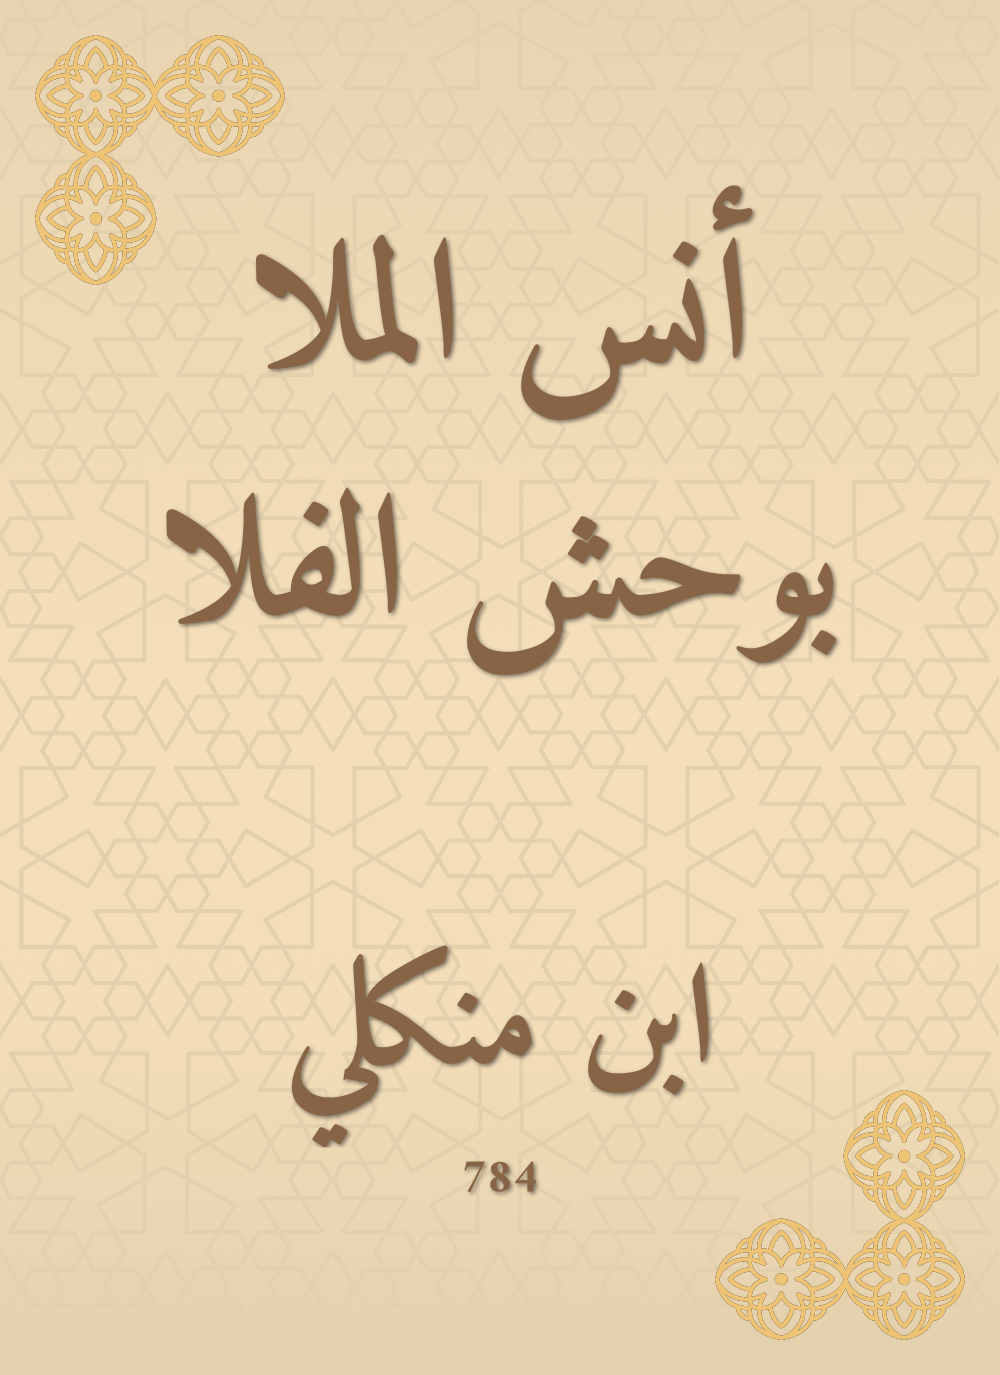 أنس الملا
بوحش الفلا
ابن منكلي
784